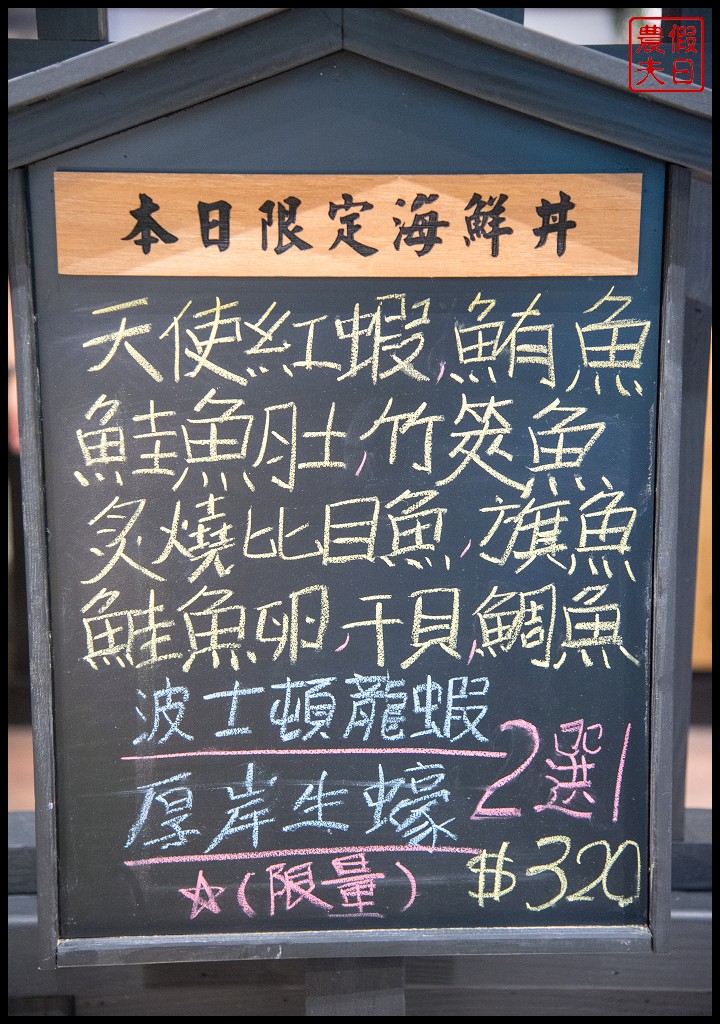 假日
農夫
本日限定海鮮丼
天使紅蝦,鮪魚
鮭魚肚,竹筴魚
炙燒比目魚,旗魚
鮭魚卵,干貝,鯛魚
波士頓龍蝦
厚岸生蠔
2選1
☆(限量)
$320